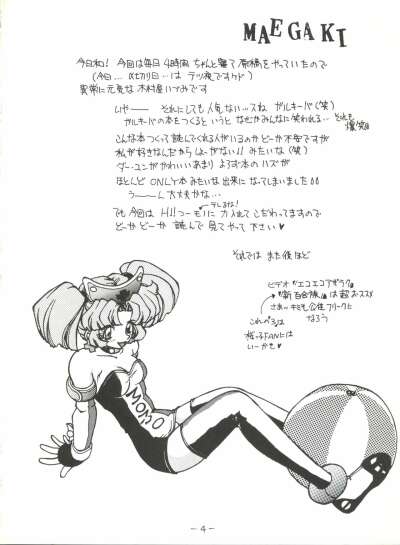 MAEGAKI
今日和!今回は毎日4時間ちゃんと寝て原稿をやっていたので
(今日… は テツ夜ですケド)
異常に元気な木村屋いづみです
いやーー それにしても人気ない…スね ガルキーバ(笑)
ガルキーバの本をつくるというと なぜかみんなに笑われる…
それも爆笑
こんな本つくって読んでくれる人がいるのかどーか不安ですが
私が好きなんだからしょーがない!!みたいな(笑)
ダー・ユンがかわいいあまり よろず本のハズが
ほとんど ONLY本みたいな出来に なってしまいました
うーーん 大丈夫かな…
でも今回は Hシーンに力入れて こだわってますので
テレるね!
どーかどーか 読んで見てやって下さい♥
それでは また後ほど
ビデオ『エコエコアザラク』
『新百合族』は超おススメ
さあ…キミも 公佳フリークに
なろう
これペろは
桜っ子FANには
いーかも♥
MOMO
-4-